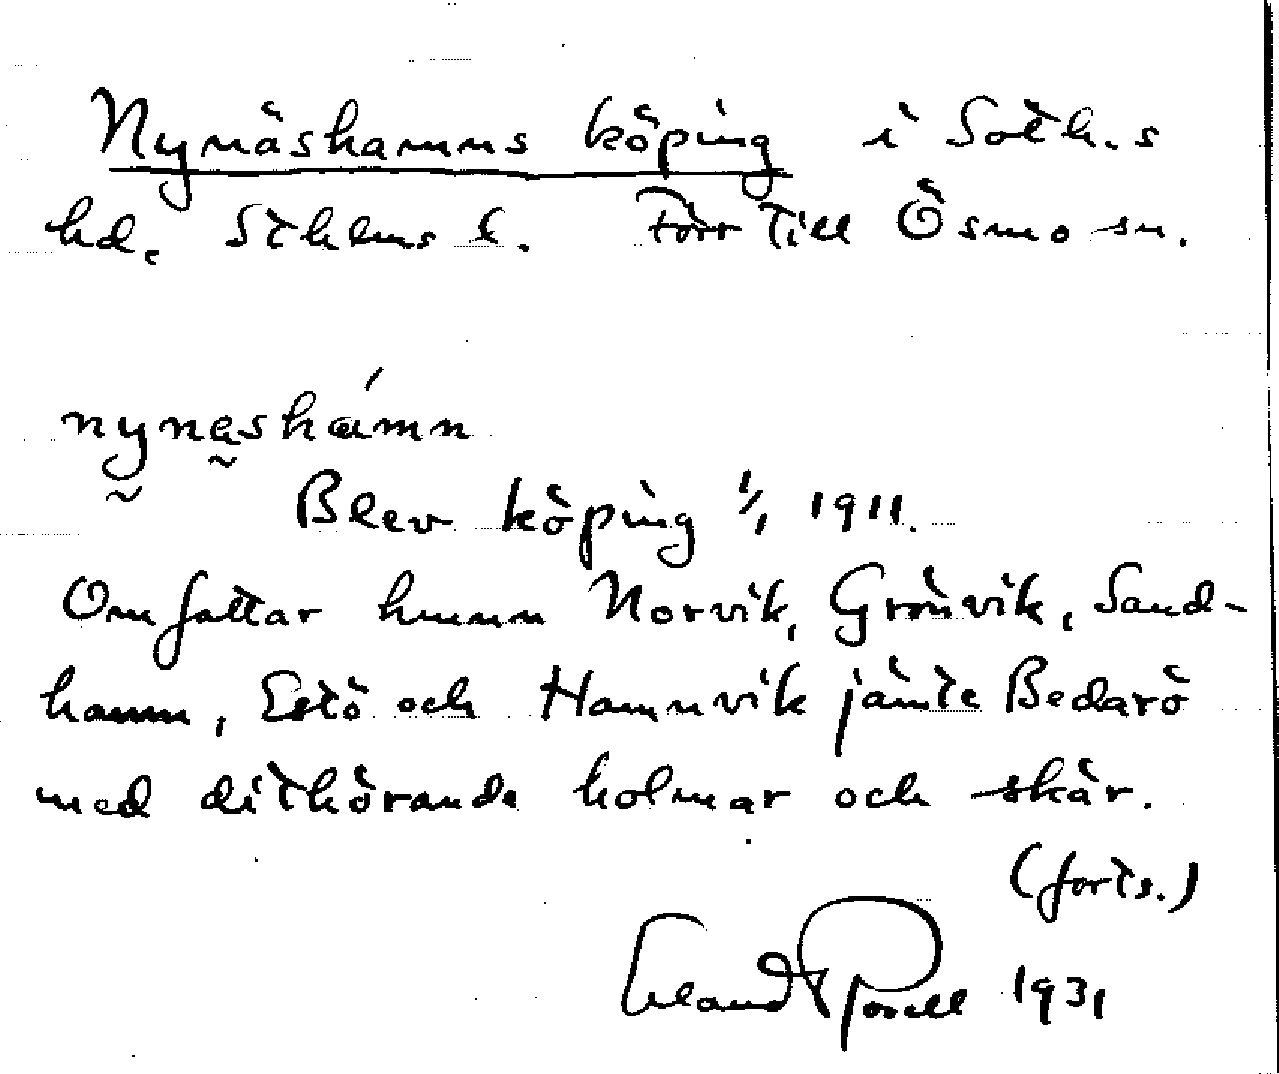 Nynäshamns köping i Soth.s
hd. Sthlms l. Förr till Ösmo sn.
nynashámn
Blev köping 1/1 1911.
Omfattar hmnn Norvik, Grönvik, Sand-
hamn, Estö och Hamnvik jämte Bedarö
med dithörande holmar och skär.
(forts.)
1931